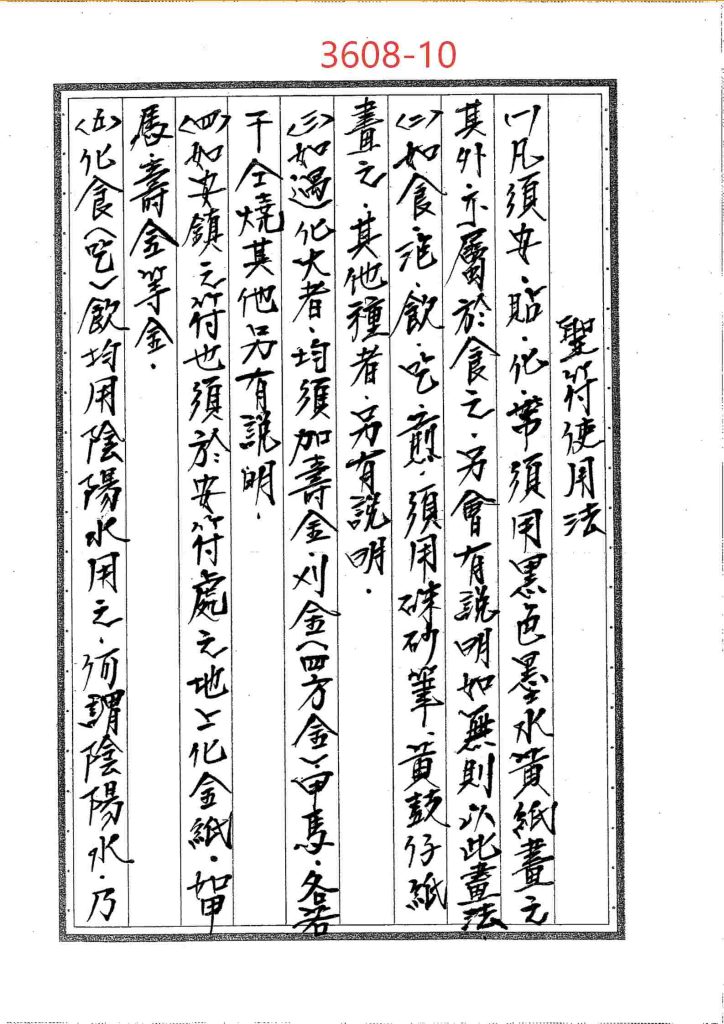 3608-10
聖符使用法
㈠凡須安·貼·化·帶須用黑色墨水黃紙畫之
其外亦屬於食之·另會有說明如無則以此畫法
㈡如食·泡·飲·吃·煎·須用硃砂筆·黃鼓仔紙
畫之·其他種者·另有說明·
㈢如過化火者·均須加壽金·刈金(四方金)·甲馬·各若
干仝燒其他另有說明·
㈣如安鎮之符也須於安符處之地上化金紙·如甲
馬·壽金等金·
㈤化食(吃)飲均用陰陽水用之·何謂陰陽水·乃